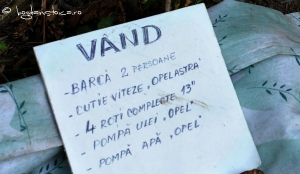 © bogdanstoica.ro
VÂND
- BARCĂ 2 PERSOANE
- CUTIE VITEZE „OPEL ASTRA"
- 4 ROTI COMPLECTE 13"
- POMPĂ ULEI „OPEL"
- POMPĂ APĂ „OPEL"